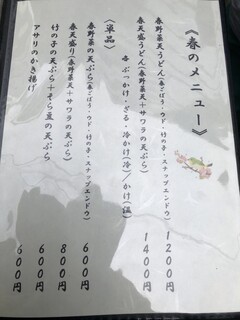 《春のメニュー》
春野菜天うどん(春ごぼう・ウド・竹の子・スナップエンドウ)
1200円
春天盛りうどん(春野菜天+サワラの天ぷら)
1400円
各 ぶっかけ・ざる・冷かけ(冷)/かけ(温)
〈単品〉
春野菜の天ぷら(春ごぼう・ウド・竹の子・スナップエンドウ)
600円
春天盛り(春野菜天+サワラの天ぷら)
800円
竹の子の天ぷら+そら豆の天ぷら
600円
アサリのかき揚げ
600円